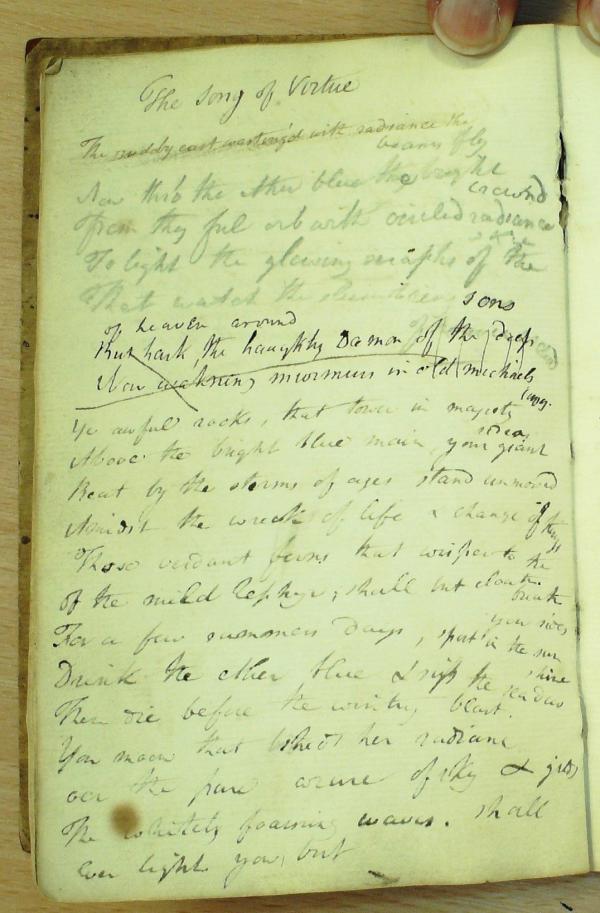 The Song of Virtue
The ruddy east with radiance the
beams fly
Now thro the ether blue the bright
crownd
From thy ful orb with circled radiance
To light the glowing seraphs of the
That watch the slumbering sons
of heaven around
But hark, the haughty Dæmon of the deep
Now murmurs in old michaels
caves.
Ye awful rocks, that tower in majesty
Above the bright blue main, your giant
sides
Beat by the storms of ages stand unmoved
Amidst the wreck of life & change of things
Those verdant ferns that wisper to the
breath
of the mild Zephyr, shall but cloath
your sides
For a few summers days, sport in the sun
shine
Drink the ether blue & sip the
Then die before the wintry blast.
Yon moon that sheds her radiance
oer the pure azure of sky &
The whitely foaming waves. shall
Ever light you, but